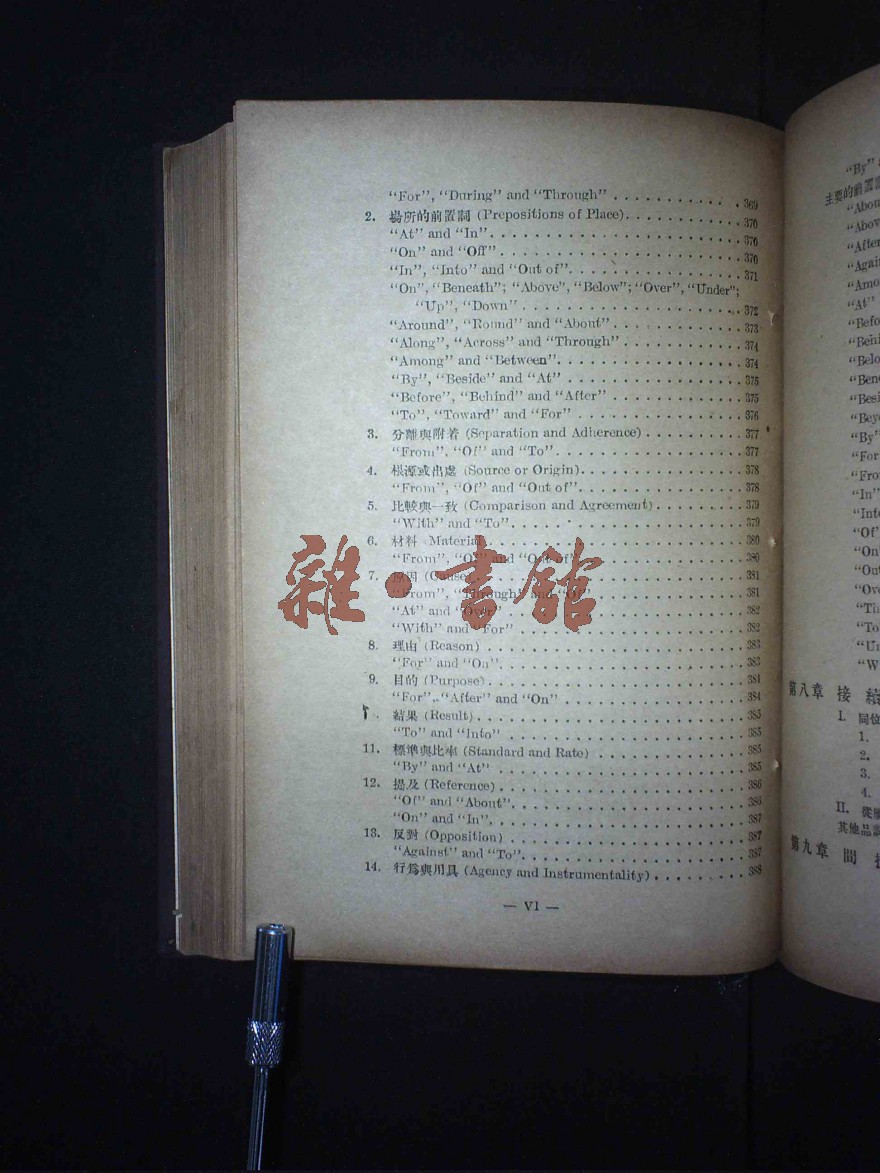 "For", "During" and "Through" . . . . . . . . . . . 369
2. 場所的前置詞 (Prepositions of Place). . . . . . . . . . . 370
"At" and "In". . . . . . . . . . . 370
"On" and "Off" . . . . . . . . . . . 370
"In", "Into" and "Out of". . . . . . . . . . . 371
"On", "Beneath"; "Above", "Below"; "Over", "Under";
"Up", "Down" . . . . . . . . . . . 372
"Around", "Round" and "About" . . . . . . . . . . . 373
"Along", "Across" and "Through" . . . . . . . . . . . 374
"Among" and "Between". . . . . . . . . . . 374
"By", "Beside" and "At" . . . . . . . . . . . 375
"Before", "Behind" and "After" . . . . . . . . . . . 375
"To", "Toward" and "For" . . . . . . . . . . . 376
3. 分離與附着 (Separation and Adherence) . . . . . . . . . . . 377
"From", "Of" and "To". . . . . . . . . . . 377
4. 根源或出處 (Source or Origin). . . . . . . . . . . 378
"From", "Of" and "Out of". . . . . . . . . . . 378
5. 比較與一致 (Comparison and Agreement). . . . . . . . . . . 379
"With" and "To". . . . . . . . . . . 379
6. 材料 (Material) . . . . . . . . . . . 380
"From", "Of" and "Out of" . . . . . . . . . . . 380
7. 原因 (Cause) . . . . . . . . . . . 381
"From", "Through" and "Of" . . . . . . . . . . . 381
"At" and "Over" . . . . . . . . . . . 382
"With" and "For" . . . . . . . . . . . 382
8. 理由 (Reason) . . . . . . . . . . . 383
"For" and "On". . . . . . . . . . . 383
9. 目的 (Purpose) . . . . . . . . . . . 384
"For", "After" and "On" . . . . . . . . . . . 384
結果 (Result) . . . . . . . . . . . 385
"To" and "Into" . . . . . . . . . . . 385
11. 標準與比率 (Standard and Rate) . . . . . . . . . . . 385
"By" and "At" . . . . . . . . . . . 385
12. 提及 (Reference) . . . . . . . . . . . 386
"Of" and "About". . . . . . . . . . . 386
"On" and "In". . . . . . . . . . . 387
13. 反對 (Opposition) . . . . . . . . . . . 387
"Against" and "To". . . . . . . . . . . 387
14. 行爲與用具 (Agency and Instrumentality) . . . . . . . . . . . 388
— VI —
雜·書館
"By"
主要的前置
"Abou
"Abov
"After
"Again
"Amo
"At"
"Befo
"Behi
"Belo
"Bene
"Besi
"Beyo
"By"
"For
"Fro
"In"
"Into
"Of"
"On"
"Out
"Ove
"Th
"To
"Un
"W
第八章 接
I. 同位
1.
2.
3.
4.
II. 從
其他品
第九章 間